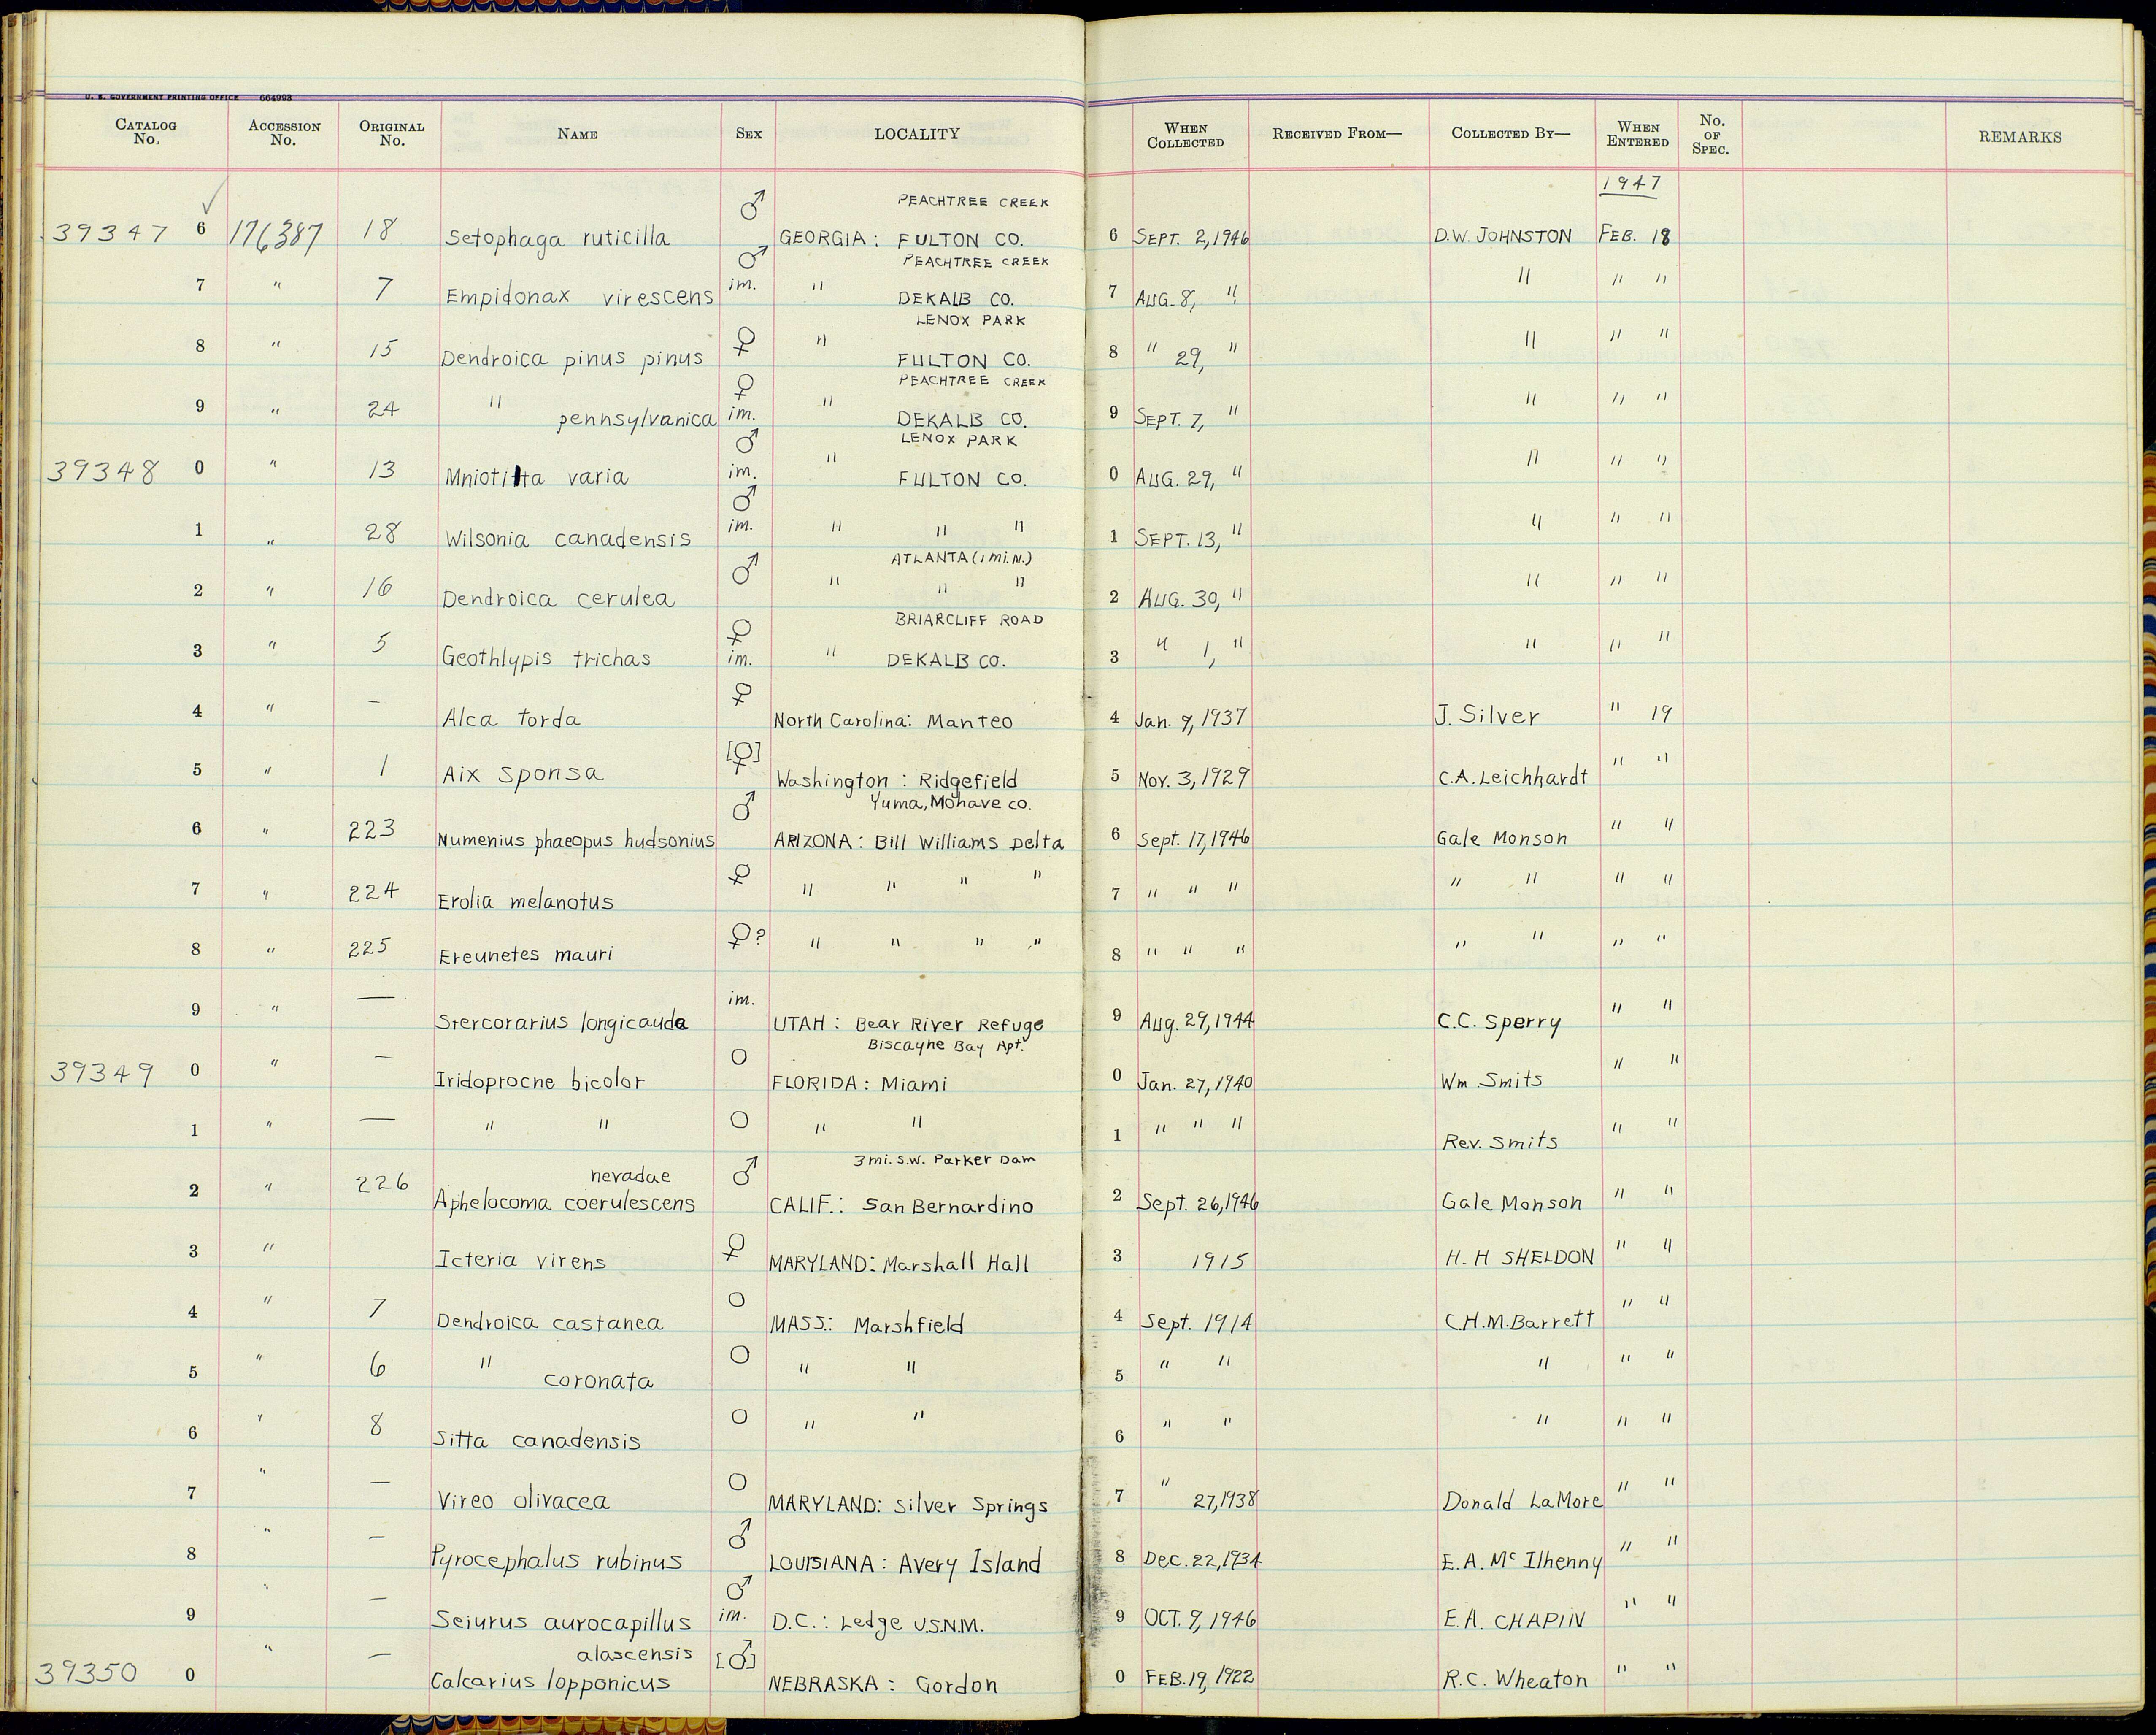 U. S. GOVERNMENT PRINTING OFFICE 664993
CATALOG No. ACCESSION No. ORIGINAL No. NAME SEX LOCALITY WHEN COLLECTED RECEIVED FROM— COLLECTED BY— WHEN ENTERED No. OF SPEC. REMARKS
1947
PEACHTREE CREEK
39347 6 176387 18 Setophaga ruticilla ♂ GEORGIA: FULTON CO. 6 SEPT. 2, 1946 D.W. JOHNSTON FEB. 18
PEACHTREE CREEK
7 " 7 Empidonax virescens ♂ im. " DEKALB CO. 7 AUG. 8, " " " "
LENOX PARK
8 " 15 Dendroica pinus pinus ♀ " FULTON CO. 8 " 29, " " " "
PEACHTREE CREEK
9 " 24 " pennsylvanica ♀ im. " DEKALB CO. 9 SEPT. 7, " " " "
LENOX PARK
39348 0 " 13 Mniotilta varia ♂ im. " FULTON CO. 0 AUG. 29, " " " "
1 " 28 Wilsonia canadensis ♂ im. " " " 1 SEPT. 13, " " " "
ATLANTA (1 mi. N.)
2 " 16 Dendroica cerulea ♂ " " " 2 AUG. 30, " " " "
BRIARCLIFF ROAD
3 " 5 Geothlypis trichas ♀ im. " DEKALB CO. 3 " 1, " " " "
4 " — Alca torda ♀ North Carolina: Manteo 4 Jan. 9, 1937 J. Silver " 19
5 " 1 Aix sponsa [♀] Washington: Ridgefield 5 Nov. 3, 1929 C.A. Leichhardt " "
Yuma, Mohave co.
6 " 223 Numenius phaeopus hudsonius ♂ ARIZONA: Bill Williams Delta 6 Sept. 17, 1946 Gale Monson " "
7 " 224 Erolia melanotus ♀ " " " " 7 " " " " " " "
8 " 225 Ereunetes mauri ♀? " " " " 8 " " " " " " "
9 " — Stercorarius longicauda im. UTAH: Bear River Refuge 9 Aug. 29, 1944 C.C. Sperry " "
Biscayne Bay Apt.
39349 0 " — Iridoprocne bicolor O FLORIDA: Miami 0 Jan. 27, 1940 Wm. Smits " "
1 " — " " O " " 1 " " " Rev. Smits " "
nevadae 3 mi. S.W. Parker Dam
2 " 226 Aphelocoma coerulescens ♂ CALIF.: San Bernardino 2 Sept. 26, 1946 Gale Monson " "
3 " Icteria virens ♀ MARYLAND: Marshall Hall 3 1915 H. H SHELDON " "
4 " 7 Dendroica castanea O MASS.: Marshfield 4 Sept. 1914 C.H.M. Barrett " "
5 " 6 " coronata O " " 5 " " " " "
6 " 8 Sitta canadensis O " " 6 " " " " "
7 " — Vireo olivacea O MARYLAND: Silver Springs 7 " 27, 1938 Donald LaMore " "
8 " — Pyrocephalus rubinus ♂ LOUISIANA: Avery Island 8 Dec. 22, 1934 E.A. Mc Ilhenny " "
9 " — Seiurus aurocapillus ♂ im. D.C.: Ledge U.S.N.M. 9 OCT. 9, 1946 E.A. CHAPIN " "
alascensis
39350 0 " — Calcarius lopponicus [♂] NEBRASKA: Gordon 0 FEB. 19, 1922 R.C. Wheaton " "